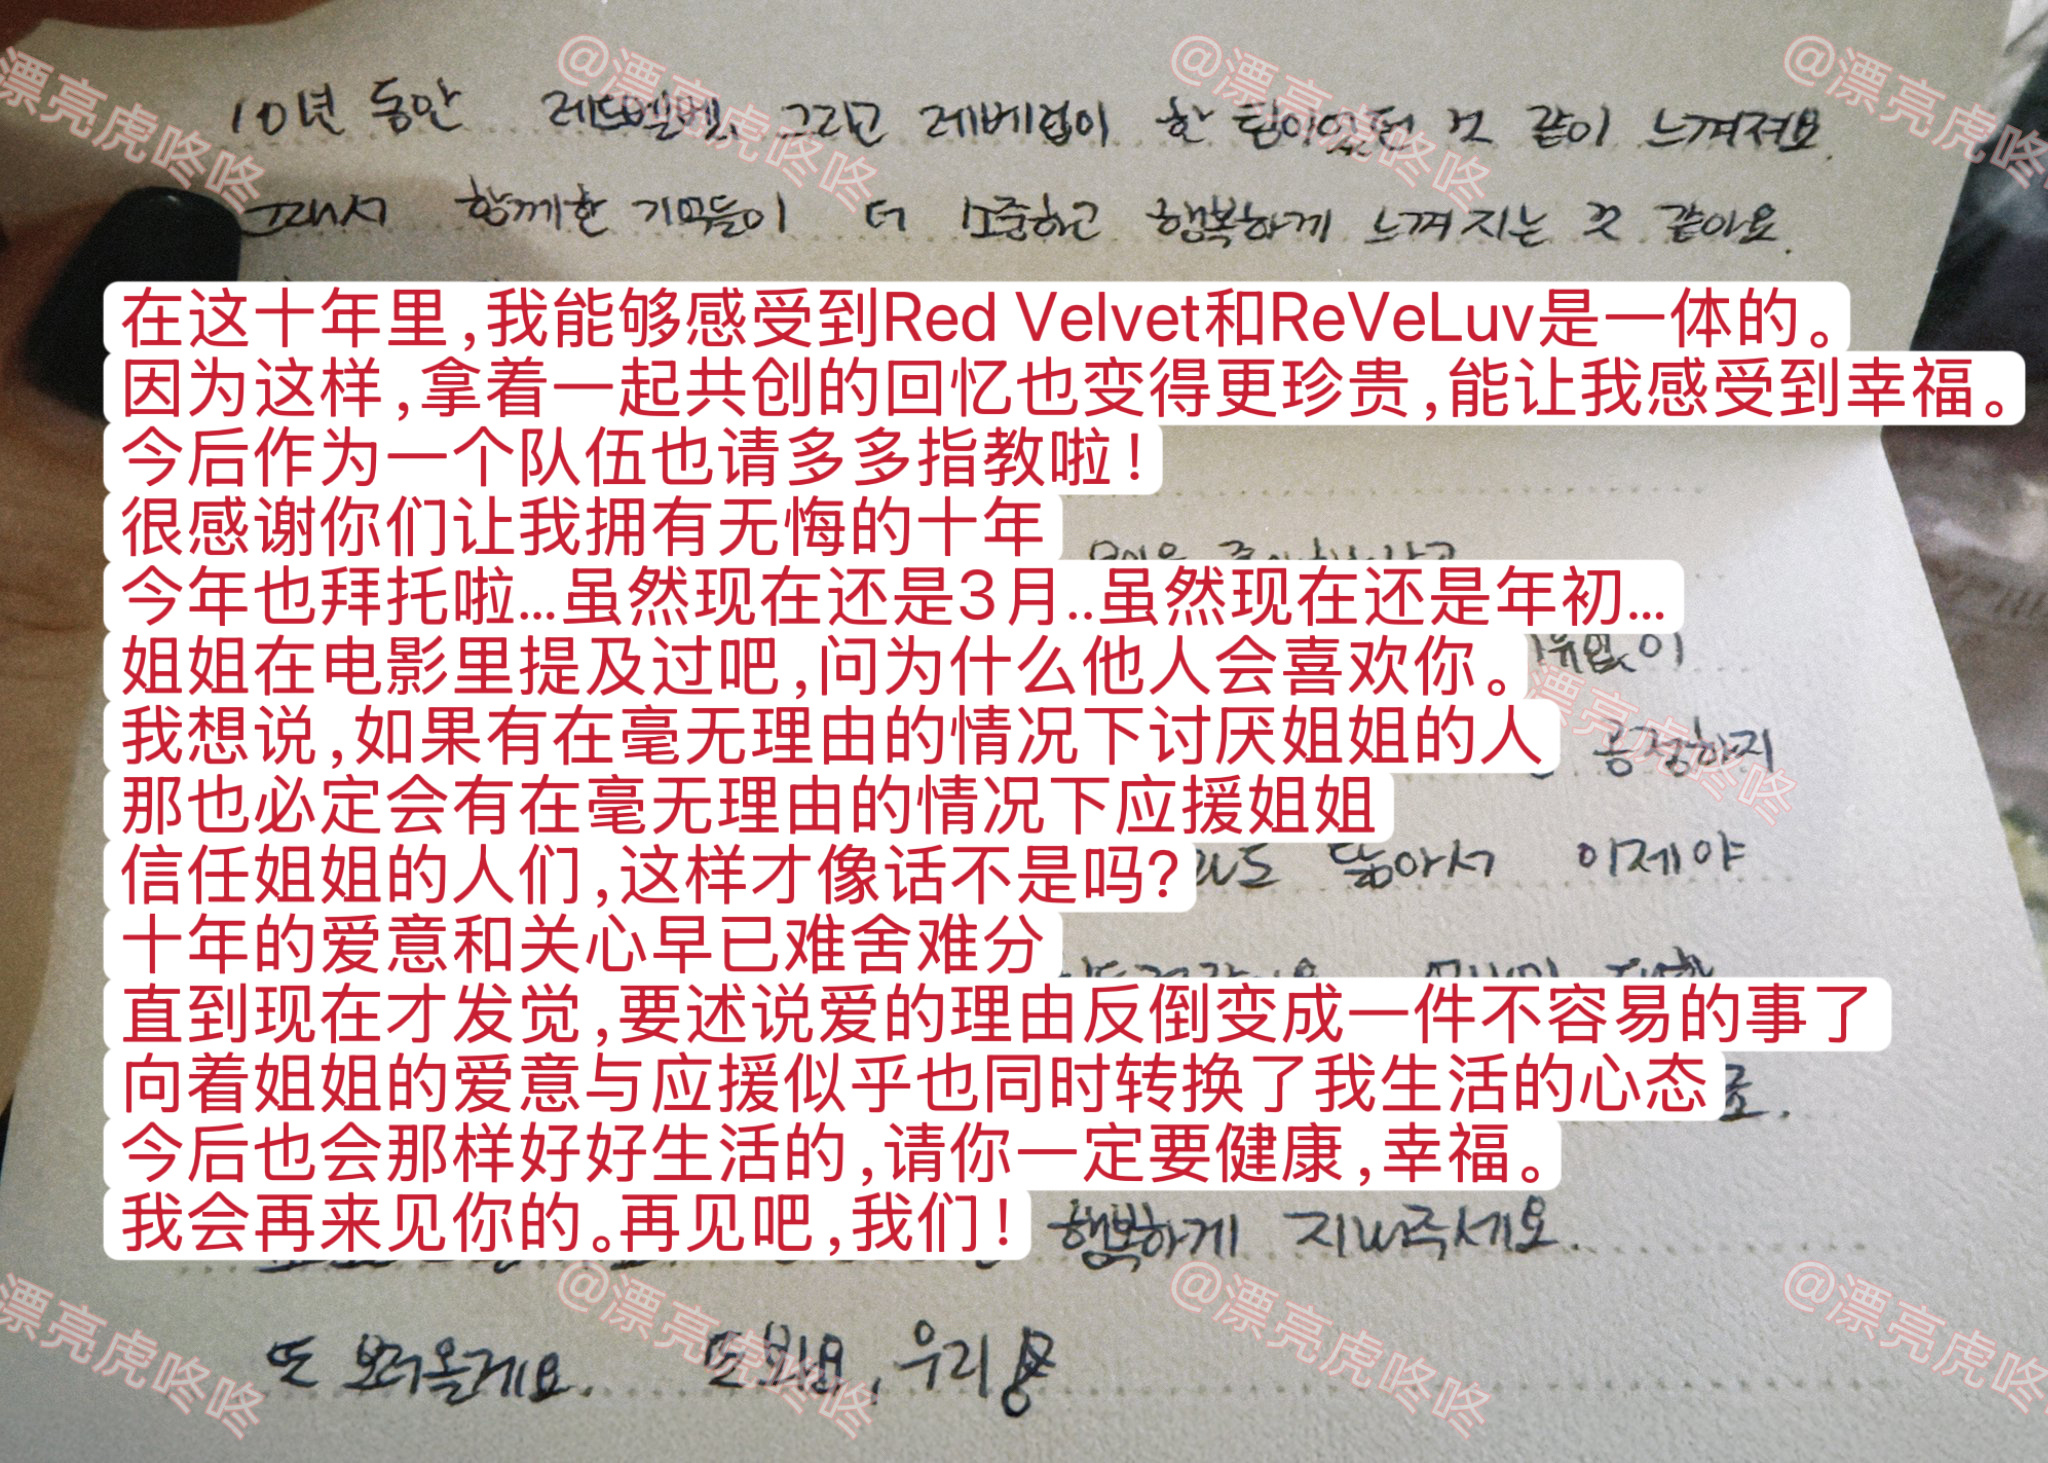 10년 동안 레드벨벳, 그리고 레베럽이 한 팀이었던 것 같이 느껴져요.
그래서 함께한 기억들이 더 소중하고 행복하게 느껴지는 것 같아요.
在这十年里,我能够感受到Red Velvet和ReVeLuv是一体的。
因为这样,拿着一起共创的回忆也变得更珍贵,能让我感受到幸福。
今后作为一个队伍也请多多指教啦!
很感谢你们让我拥有无悔的十年
今年也拜托啦...虽然现在还是3月..虽然现在还是年初...
姐姐在电影里提及过吧,问为什么他人会喜欢你。
我想说,如果有在毫无理由的情况下讨厌姐姐的人 긍정하지
那也必定会有在毫无理由的情况下应援姐姐
信任姐姐的人们,这样才像话不是吗? 닳아서 이제야
十年的爱意和关心早已难舍难分
直到现在才发觉,要述说爱的理由反倒变成一件不容易的事了
向着姐姐的爱意与应援似乎也同时转换了我生活的心态
今后也会那样好好生活的,请你一定要健康,幸福。
我会再来见你的。再见吧,我们! 행복하게 지내주세요.
또 보러올게요. 또 봐요, 우리
@漂亮虎咚咚